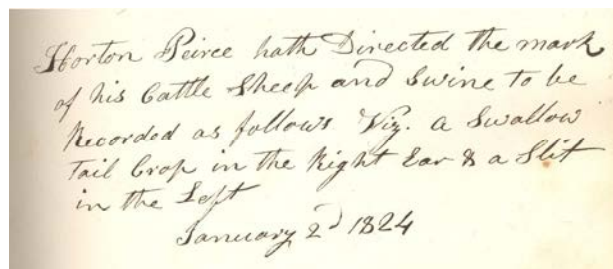 Horton Peirce hath Directed the mark
of his Cattle Sheep and Swine to be
Recorded as follows Viz. a Swallow
Tail Crop in the Right Ear & a Slit
in the Left
January 2d 1824